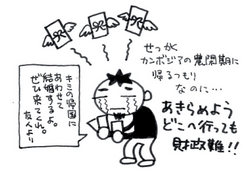 せっかく
カンボジアの農閑期に
帰るつもり
なのに…
あきらめよう
どこへ行っても
財政難!!
キミの帰国に
あわせて
結婚するよ。
ぜひ来てくれ。
友人より